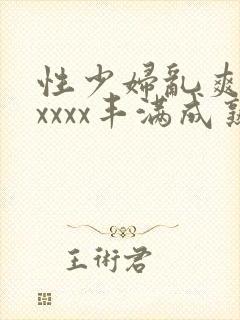 性少婦亂爽
xxxx丰满成熟
王術君